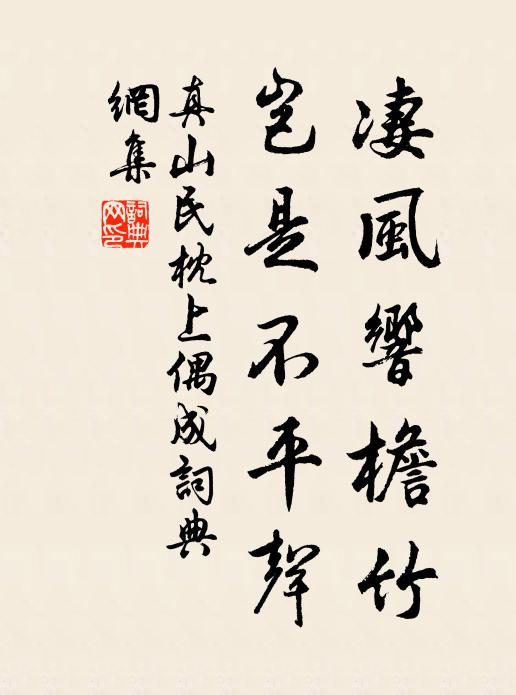 凄風響檐竹
豈是不平聲
真山民枕上偶成詞典
網集
詞典
网印